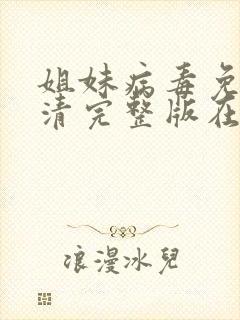 姐妹病毒免
清完整版在
浪漫冰兒